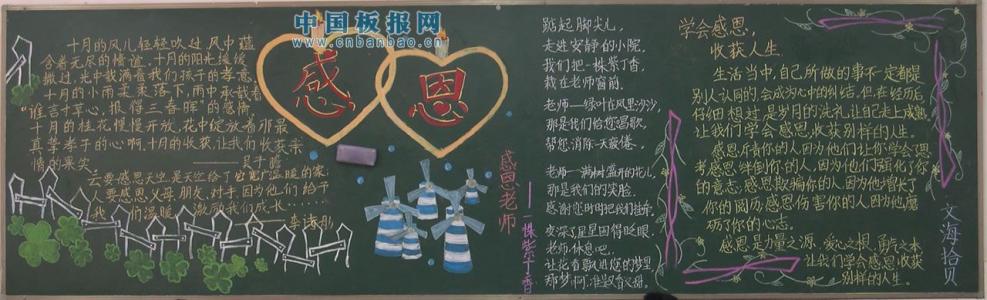 中国板报网
www.cnbanbao.cn
十月的风儿轻轻吹过,风中蕴
含着无尽的情谊,十月的阳光缓缓
撒过,光中载满着我们孩子的孝意,
十月的小雨柔柔落下,雨中承载着
"谁言寸草心,报得三春晖"的感情,
十月的桂花慢慢开放,花中绽放着那最
真挚孝子的心啊,十月的收获,让我们收获亲
情的果实。
要感恩天空,是天空给了
要感恩父母、朋友、对手因为他们给予
我们温暖,激励我们成长……
感
恩
感恩老师
——一株紫丁香
踮起脚尖儿,
走进安静的小院,
我们把一株紫丁香,
栽在老师窗前。
老师——绿叶在风里沙沙,
那是我们给您唱歌,
帮您消除一天疲倦。
老师——满树盛开的花儿,
那是我们的笑脸,
感谢您时时把我们挂牵。
夜深了星星困得眨眼,
老师,休息吧。
让花香飘进您的梦里,
那梦啊,准甜又香甜。
学会感恩,
收获人生。
生活当中,自己所做的事不一定都是
别人认同的,会成为心中的纠结,但,在经历后
仔细想过,是岁月的洗礼,让自己走上成熟,
让我们学会感恩,收获别样的人生。
感恩斥责你的人,因为他们让你学会思
考,感恩绊倒你的人,因为他们强化了你
的意志;感恩欺骗你的人,因为他增长了
你的阅历,感恩伤害你的人,因为他磨
动了你的心志。
感恩是力量之源、爱心之根、勇气之本,
让我们学会感恩,收获
别样的人生。
文海拾贝